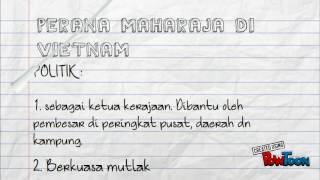 PERANA MAHARAJA DI
VIETNAM
POLITIK :
1. sebagai ketua kerajaan. Dibantu oleh
pembesar di peringkat pusat, daerah dn
kampung.
2. Berkuasa mutlak
CREATED USING
POWTOON